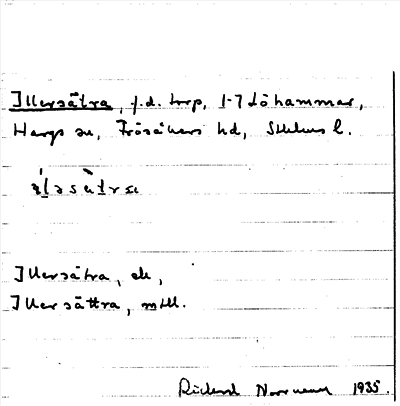 Illersätra, f.d. torp, 1-7 Löhammar,
Hargs sn, Frösåkers hd, Sthlms l.
Illersätra, ek,
Illersättra, mtll.
Rickard 1935.